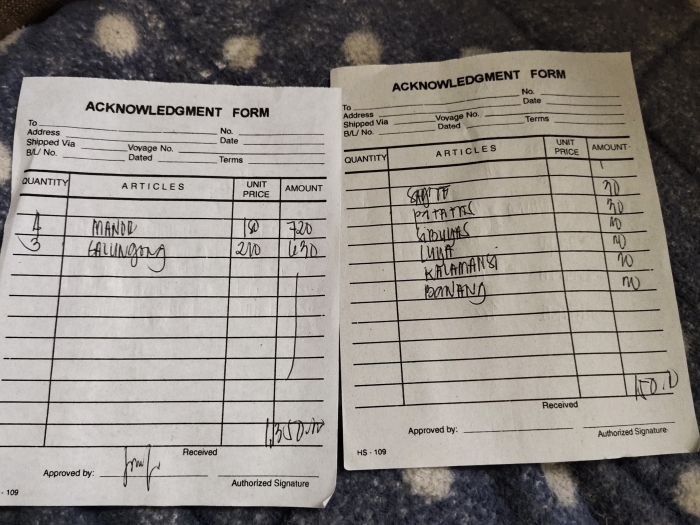 ACKNOWLEDGMENT FORM
To
No.
Address
Date
Shipped Via
Voyage No.
B/L/ No.
Dated
Terms
QUANTITY ARTICLES UNIT PRICE AMOUNT
4 MANOK 180 720
3 GALUNGONG 210 630
1,350.00
Received
Approved by:
Authorized Signature
- 109
ACKNOWLEDGMENT FORM
No.
To
Date
Address
Shipped Via
Voyage No.
Terms
B/L/ No.
Dated
QUANTITY ARTICLES UNIT PRICE AMOUNT
30
PATATAS 30
SIBUYAS
LUYA
KALAMANSI
BAWANG
150.00
Received
Approved by:
Authorized Signature
HS - 109